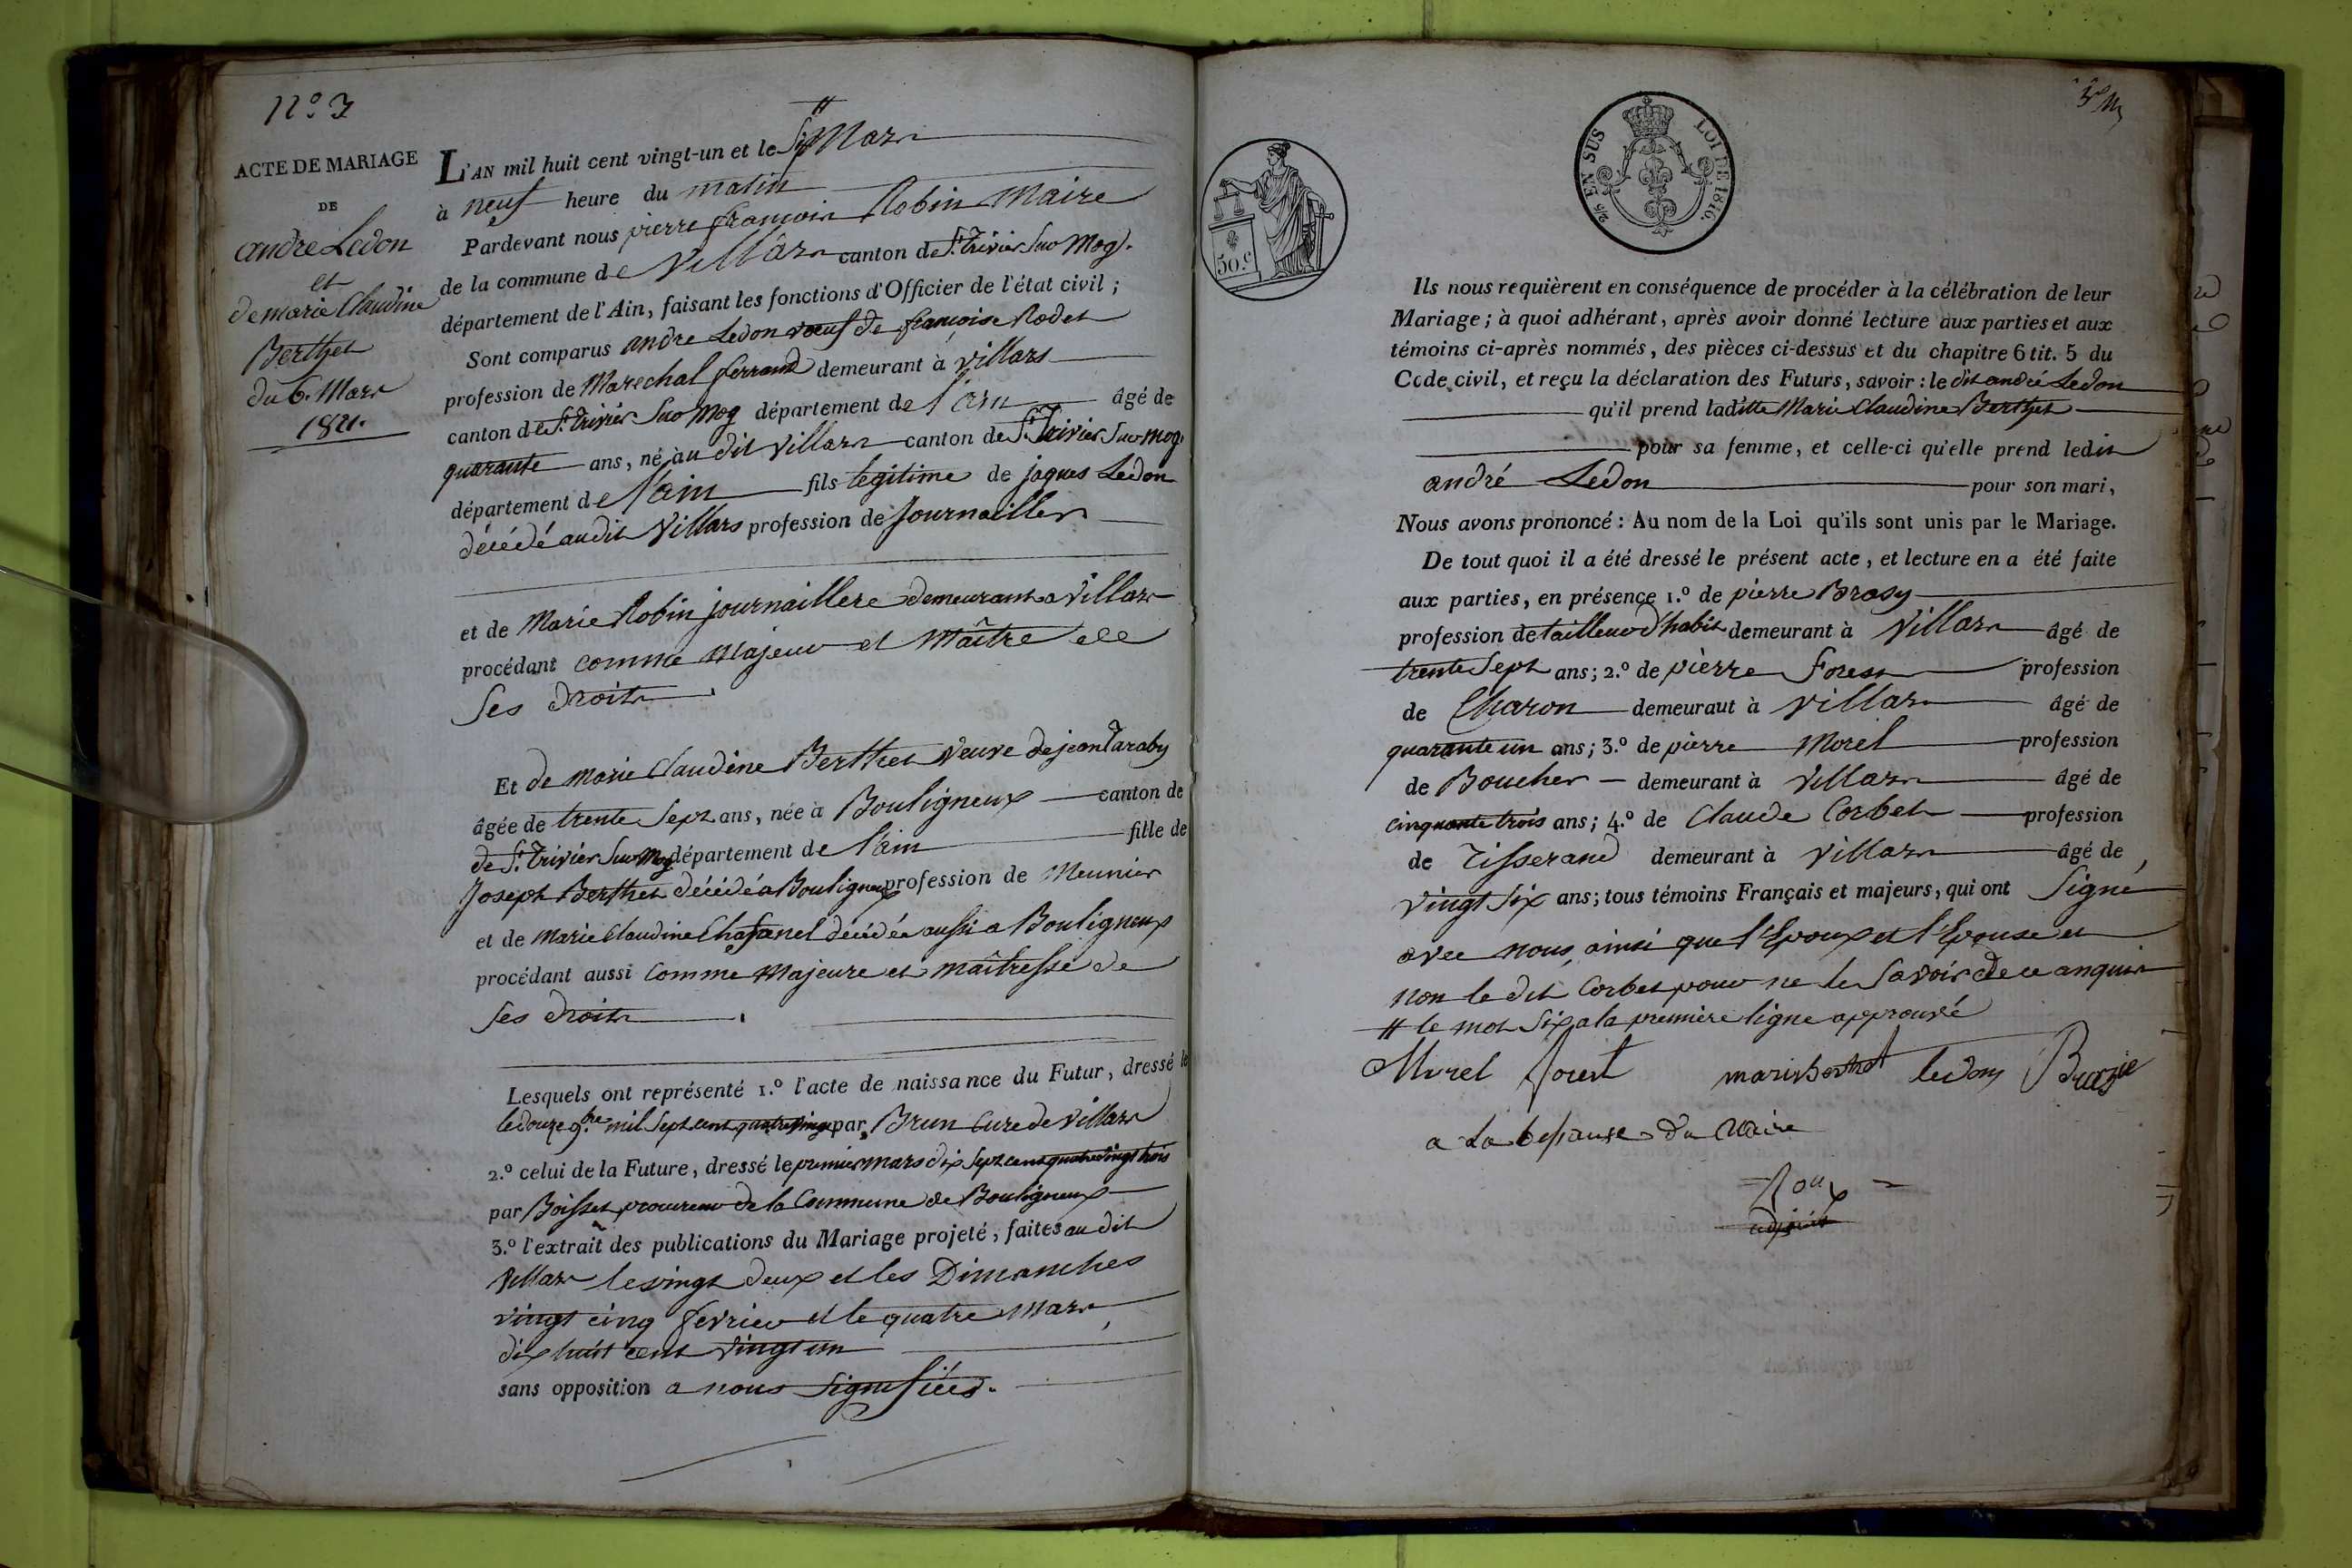 N.º 3
ACTE DE MARIAGE
DE
andre Ledon
et
de marie Claudine
Berthet
du 6. Mars
1821.
L'AN mil huit cent vingt-un et le Six // Mars
à neuf heure du matin
Pardevant nous pierre francois Robin Maire
de la commune de Villars canton de St. Trivier Sur Mog.
département de l'Ain, faisant les fonctions d'Officier de l'état civil ;
Sont comparus andre Ledon voeuf de françoise Rodet
profession de Marechal ferrand demeurant à Villars
canton de St. Trivier Sur Mog département de l'ain âgé de
quarante ans, né au dit Villars canton de St. Trivier Sur mog.
département de l'ain fils legitime de jaques Ledon
décédé audit Villars profession de Journaillier
et de Marie Robin journaillere demeurant a Villars
procédant comme Majeur et Maître de
Ses Droits
Et de Marie Claudine Berthet Veuve de jean Taraby
âgée de trente Sept ans, née à Bouligneux canton de
de St. Trivier Sur Mog département de l'ain fille de
Joseph Berthet décédé a Bouligneux profession de Meunier
et de Marie Claudine Chafanel decédée aussi a Bouligneux
procédant aussi Comme Majeure et maîtresse de
Ses Droits
Lesquels ont représenté 1.º l'acte de naissance du Futur, dressé le
le douze 9.bre mil Sept cent quatre vingt par Brun Curé de Villars
2.º celui de la Future, dressé le premier mars dix Sept cent quatre vingt trois
par Boisset procureur de la Commune de Bouligneux
3.º l'extrait des publications du Mariage projeté, faites au dit
Villars le vingt deux et les Dimanches
vingt cinq fevrier et le quatre Mars,
dix huit cent vingt un
sans opposition a nous Signifiées.
EN SUS
LOI DE 1816.
50.c
Ils nous requièrent en conséquence de procéder à la célébration de leur
Mariage ; à quoi adhérant, après avoir donné lecture aux parties et aux
témoins ci-après nommés, des pièces ci-dessus et du chapitre 6 tit. 5 du
Code civil, et reçu la déclaration des Futurs, savoir : le dit andré Ledon
qu'il prend laditte Marie Claudine Berthet
pour sa femme, et celle-ci qu'elle prend ledit
andré Ledon pour son mari,
Nous avons prononcé : Au nom de la Loi qu'ils sont unis par le Mariage.
De tout quoi il a été dressé le présent acte, et lecture en a été faite
aux parties, en présence 1.º de pierre Brasy
profession de tailleur d'habit demeurant à Villars âgé de
trente Sept ans ; 2.º de pierre Forest profession
de Charon demeuraut à Villars âgé de
quarante un ans ; 3.º de pierre Morel profession
de Boucher demeurant à Villars âgé de
cinquante trois ans ; 4.º de Claude Corbet profession
de Tisserand demeurant à Villars âgé de
vingt Six ans ; tous témoins Français et majeurs, qui ont Signé
avec nous, ainsi que l'Epoux et l'Epouse et
non le dit Corbet pour ne le Savoir de ce anquis
// le mot Six a la première ligne approuvé
Morel forest marie berthet ledon Brazie
a La du Maire
Roux
adjoint